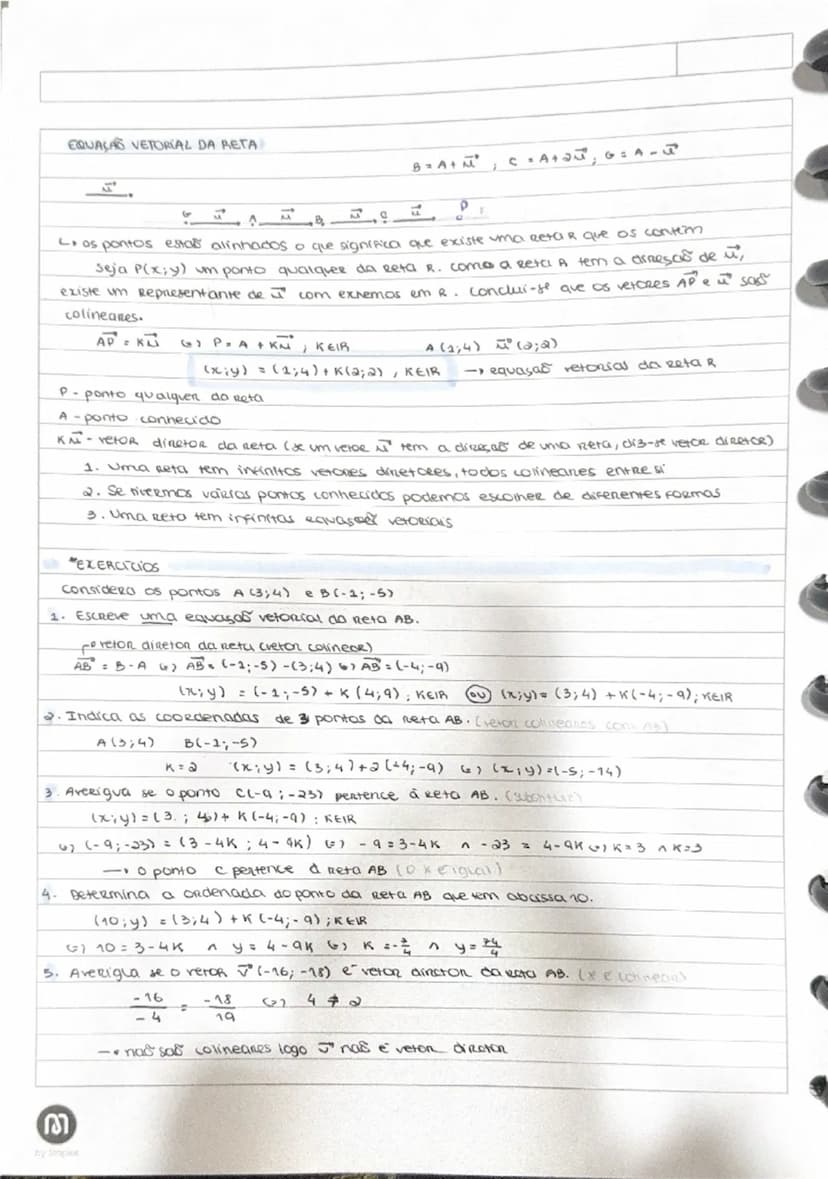 EQUAÇÃO VETORIAL DA RETA
B = A + u⃗ ; C = A + 2u⃗ ; G = A - u⃗
u⃗
G u⃗ A u⃗ B u⃗ C u⃗ P
↳ os pontos estão alinhados o que significa que existe uma reta R que os contém
Seja P(x;y) um ponto qualquer da reta R. como a reta R tem a direção de u⃗,
existe um representante de u⃗ com extremos em R. Conclui-se que os vetores AP⃗ e u⃗ são
colineares.
AP⃗ = Ku⃗ (=) P = A + Ku⃗, K∈IR A(1;4) u⃗(2;2)
(x;y) = (1;4) + K(2;2), K∈IR → equação vetorial da reta R
P - ponto qualquer da reta
A - ponto conhecido
Ku⃗ - vetor diretor da reta (se um vetor u⃗ tem a direção de uma reta, diz-se vetor diretor)
1. Uma reta tem infinitos vetores diretores, todos colineares entre si
2. Se tivermos vários pontos conhecidos podemos escolher de diferentes formas
3. Uma reta tem infinitas equações vetoriais
*EXERCÍCIOS
considera os pontos A(3;4) e B(-1;-5)
1. Escreve uma equação vetorial da reta AB.
vetor diretor da reta (vetor colinear)
AB⃗ = B - A (=) AB⃗ = (-1;-5) - (3;4) (=) AB⃗ = (-4;-9)
(x;y) = (-1;-5) + K(4;9); K∈IR ou (x;y) = (3;4) + K(-4;-9); K∈IR
2. Indica as coordenadas de 3 pontos da reta AB. (vetor colineares com AB)
A(3;4) B(-1;-5)
K=2 (x;y) = (3;4) + 2(-4;-9) (=) (x;y) = (-5;-14)
3. Averigua se o ponto C(-9;-23) pertence à reta AB. (substituir)
(x;y) = (3;4) + K(-4;-9); K∈IR
(=) (-9;-23) = (3-4K; 4-9K) (=) -9 = 3-4K ∧ -23 = 4-9K (=) K=3 ∧ K=3
→ o ponto C pertence à reta AB (o K é igual)
4. Determina a ordenada do ponto da reta AB que tem abcissa 10.
(10;y) = (3;4) + K(-4;-9); K∈IR
(=) 10 = 3-4K ∧ y = 4-9K (=) K = -7/4 ∧ y = 79/4
5. Averigua se o vetor v⃗(-16;-18) é vetor diretor da reta AB. (x é colinear)
-16/-4 = -18/19 (=) 4 ≠ 2
→ não são colineares logo v⃗ não é vetor diretor
by Smpex